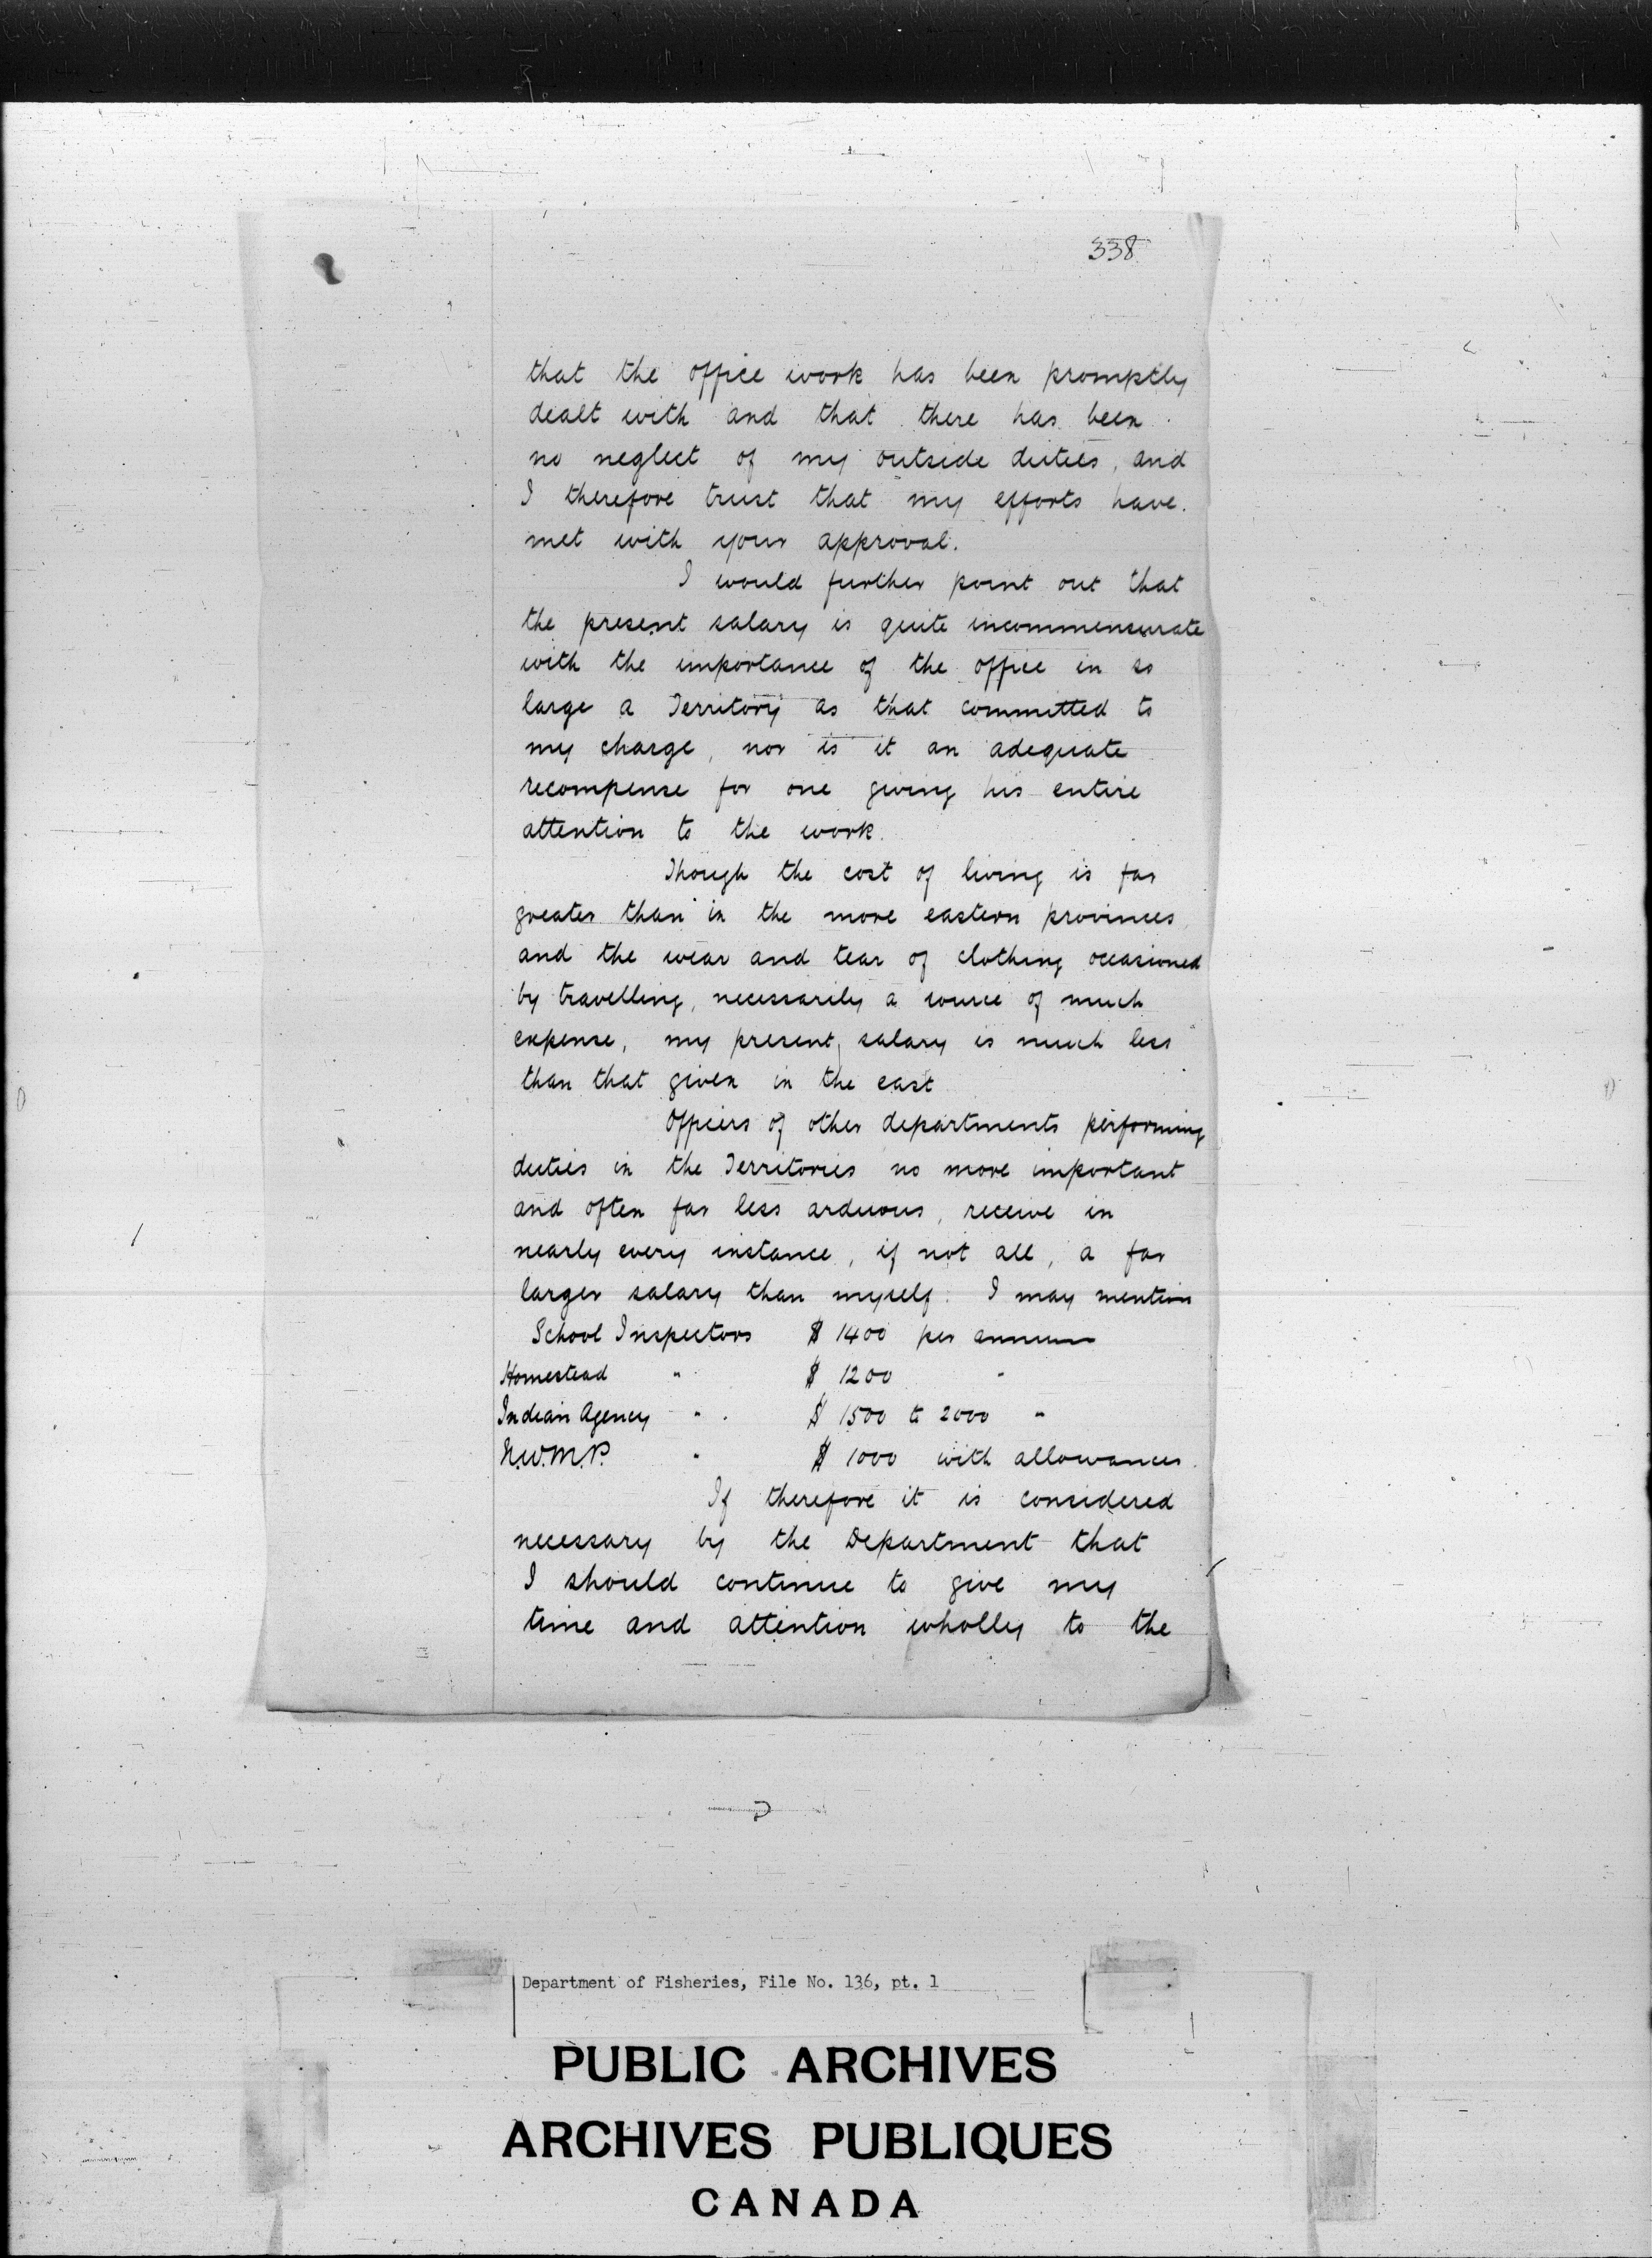 338
that the office work has been promptly
dealt with and that there has been
no neglect of my outside duties, and
I therefore trust that my efforts have
met with your approval.
I would further point out that
the present salary is quite incommensurate
with the importance of the office in so
large a Territory as that committed to
my charge, nor is it an adequate
recompense for one giving his entire
attention to the work.
Though the cost of living is far
greater than in the more eastern provinces,
and the wear and tear of clothing occasioned
by travelling, necessarily a source of much
expense, my present salary is much less
than that given in the east
Officers of other departments performing
duties in the Territories no more important
and often far less arduous, receive in
nearly every instance, if not all, a far
larger salary than myself. I may mention
School Inspectors $ 1400 per annum
Homestead " $ 1200 "
Indian Agency " $ 1500 to 2000 "
N.W.M.P. " $ 1000 with allowances.
If therefore it is considered
necessary by the Department that
I should continue to give my
time and attention wholly to the
Department of Fisheries, File No. 136, pt. 1
PUBLIC ARCHIVES
ARCHIVES PUBLIQUES
CANADA